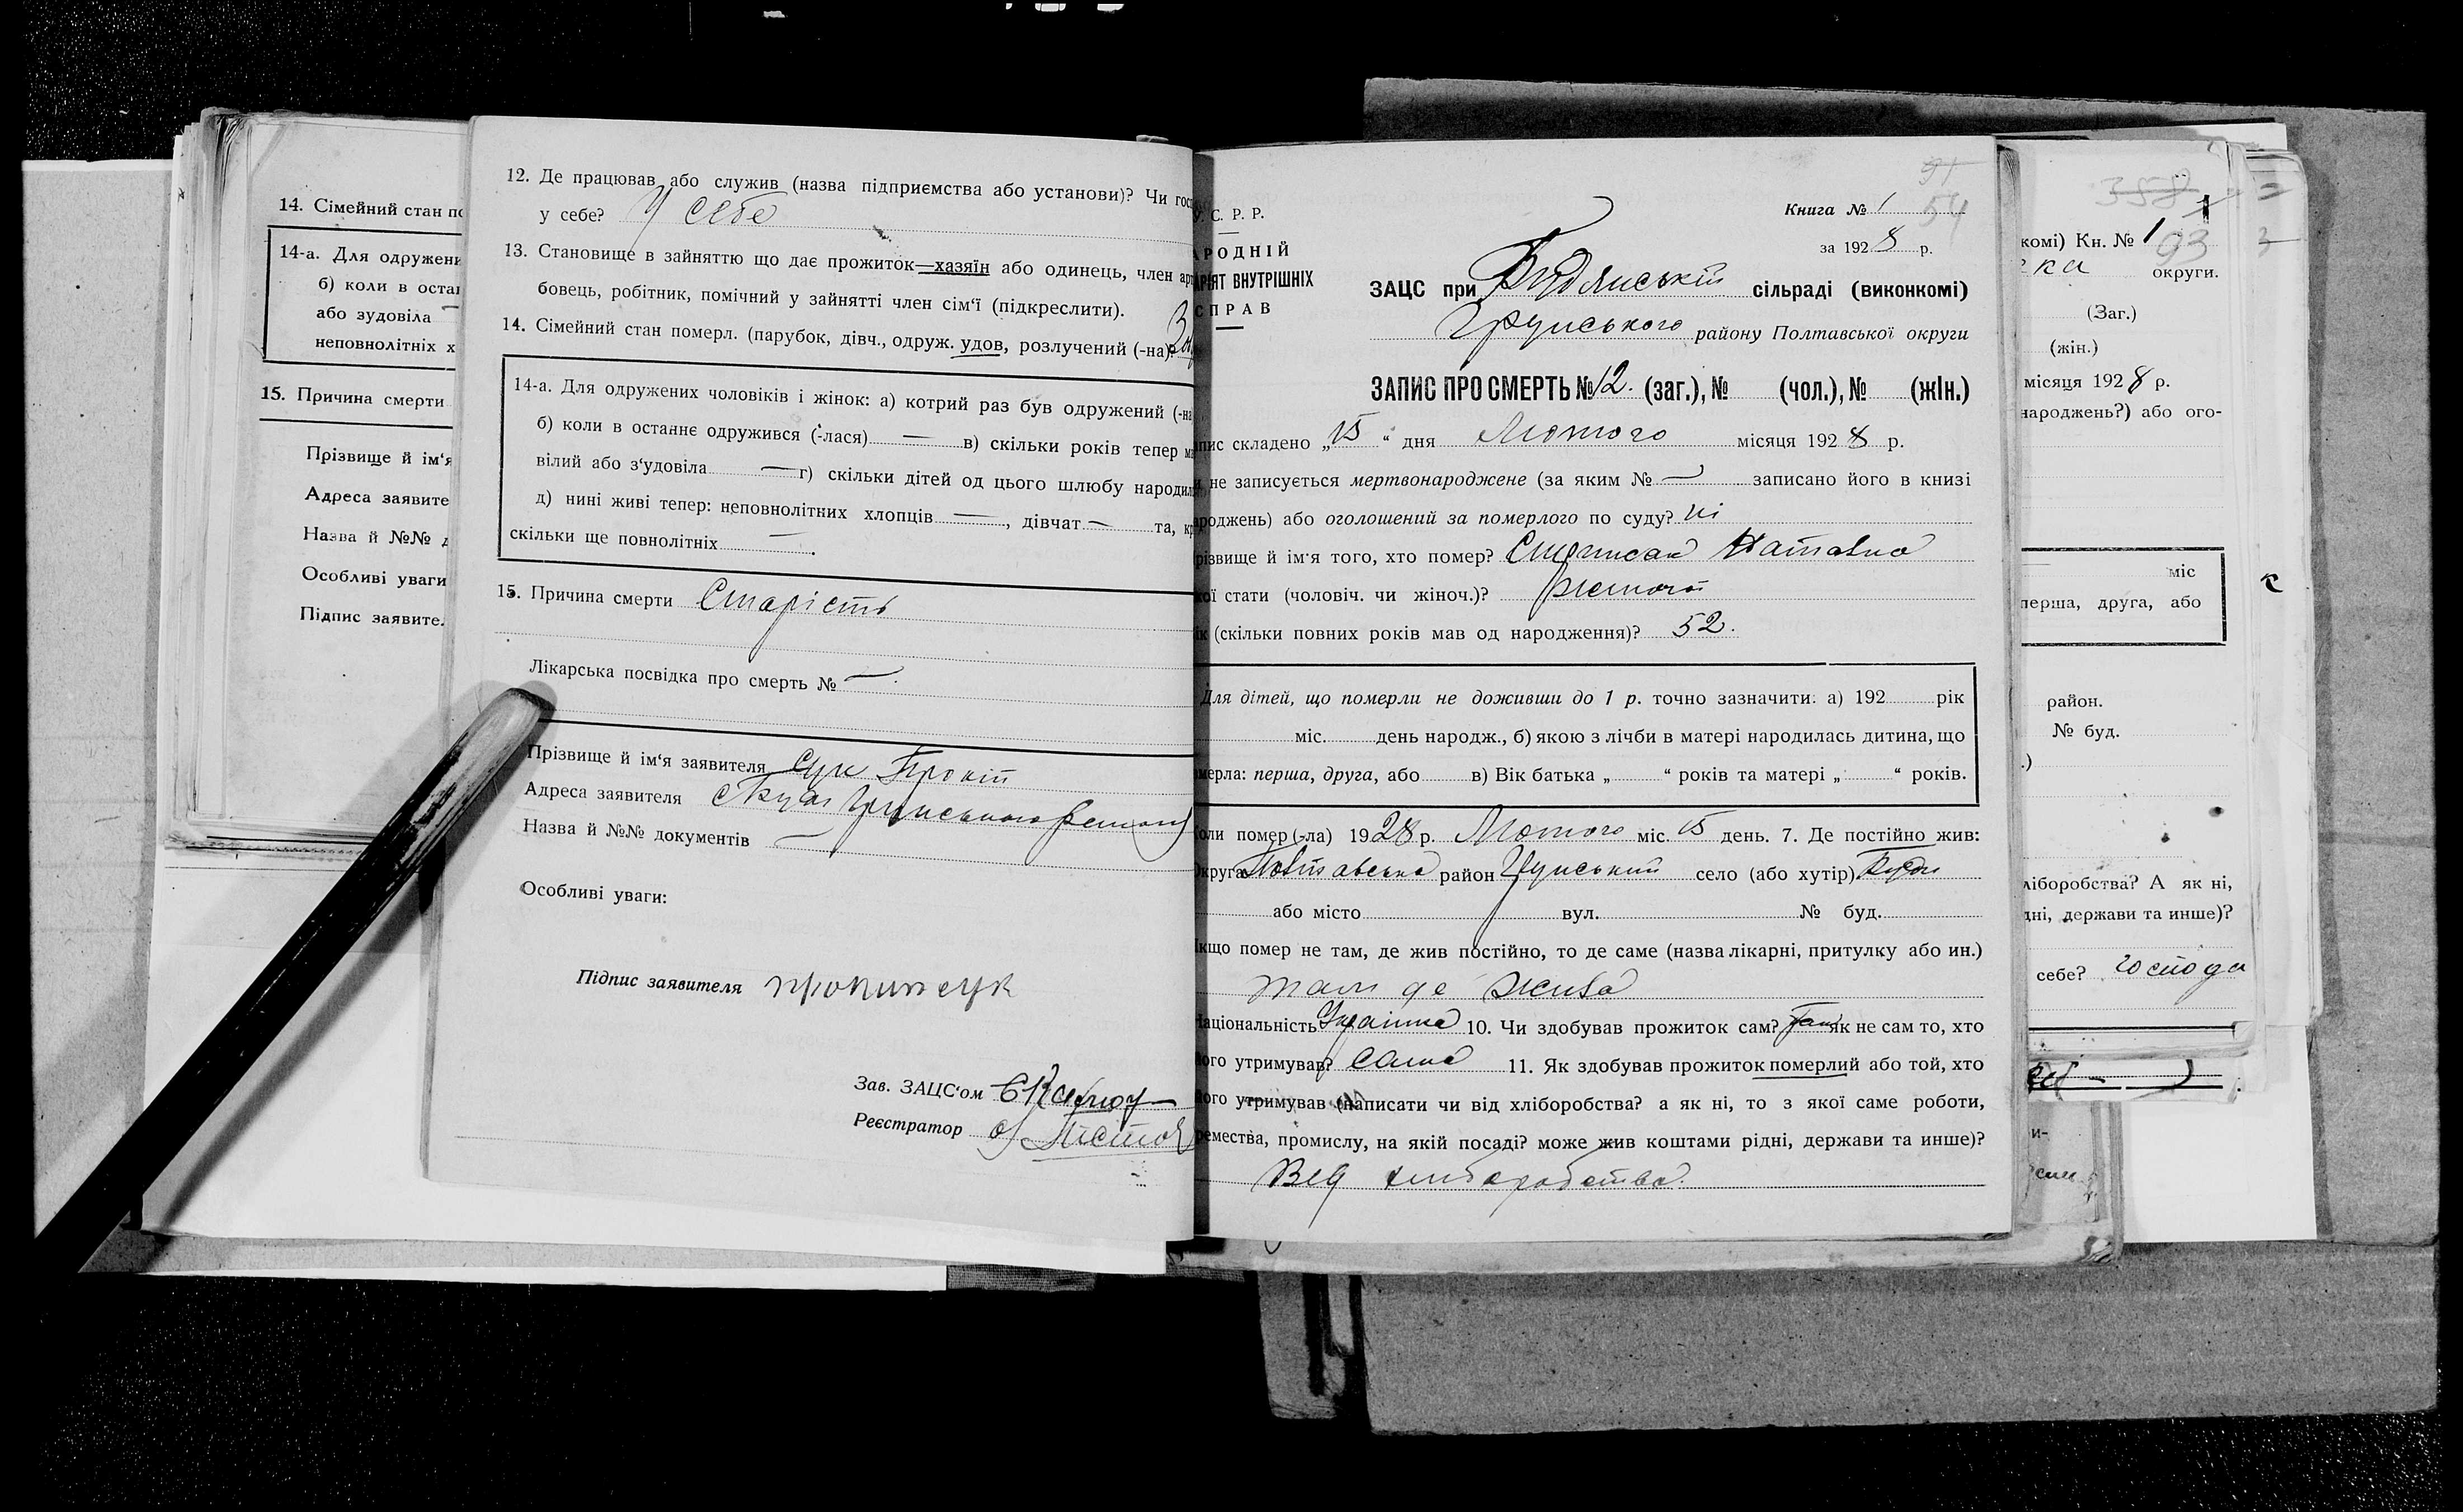 14. Сімейний стан по
14-а. Для одружени
б) коли в остан
або зудовіла
неповнолітніх х
15. Причина смерти
Прізвище й ім‘я
Адреса заявите
Назва й №№ д
Особливі уваги
Підпис заявите.
12. Де працював або служив (назва підприємства або установи)? Чи гос
у себе? У себе
13. Становище в зайняттю що дає прожиток—хазяїн або одинець, член ар
бовець, робітник, помічний у зайнятті член сім‘ї (підкреслити).
14. Сімейний стан померл. (парубок, дівч., одруж. удов, розлучений (-на)?
14-а. Для одружених чоловіків і жінок: а) котрий раз був одружений (-на
б) коли в останнє одружився (-лася) — в) скільки років тепер м
вілий або з‘удовіла — г) скільки дітей од цього шлюбу народил
д) нині живі тепер: неповнолітних хлопців —, дівчат — та, к
скільки ще повнолітніх —.
15. Причина смерти Старість
Лікарська посвідка про смерть № —.
Прізвище й ім‘я заявителя Сук Прокіп
Адреса заявителя с Груньського
Назва й №№ документів —
Особливі уваги:
Підпис заявителя
Зав. ЗАЦС‘ом
Реєстратор
91
Книга № 1 54
У. С. Р. Р.
за 1928 р.
АРОДНІЙ
АРІЯТ ВНУТРІШНІХ
СПРАВ
ЗАЦС при Будянській сільраді (виконкомі)
Грунського району Полтавської округи
ЗАПИС ПРО СМЕРТЬ № 12. (заг.), № (чол.), № (жін.)
пис складено „15“ дня Лютого місяця 1928 р.
и не записується мертвонароджене (за яким № — записано його в книзі
ароджень) або оголошений за померлого по суду? ні
різвище й ім‘я того, хто помер? Наталка
кої стати (чоловіч. чи жіноч.)? жіночої
ік (скільки повних років мав од народження)? 52.
Для дітей, що померли не доживши до 1 р. точно зазначити: а) 192 рік
міс. день народж., б) якою з лічби в матері народилась дитина, що
мерла: перша, друга, або в) Вік батька „ “ років та матері „ “ років.
оли помер (-ла) 1928 р. Лютого міс. 15 день. 7. Де постійно жив:
круга Полтавська район Грунський село (або хутір) Буди
або місто вул. № буд.
кщо помер не там, де жив постійно, то де саме (назва лікарні, притулку або ин.)
там де жила
аціональність Українка 10. Чи здобував прожиток сам? Так як не сам то, хто
ого утримував? сама 11. Як здобував прожиток померлий або той, хто
ого утримував (написати чи від хліборобства? а як ні, то з якої саме роботи,
емества, промислу, на якій посаді? може жив коштами рідні, держави та инше)?
Від хліборобства.
358
комі) Кн. № 1
93
ка округи.
(Заг.)
(жін.)
місяця 1928 р.
народжень?) або ого-
міс
перша, друга, або
район.
№ буд.
.)
ліборобства? А як ні,
дні, держави та инше)?
себе? господа
и-